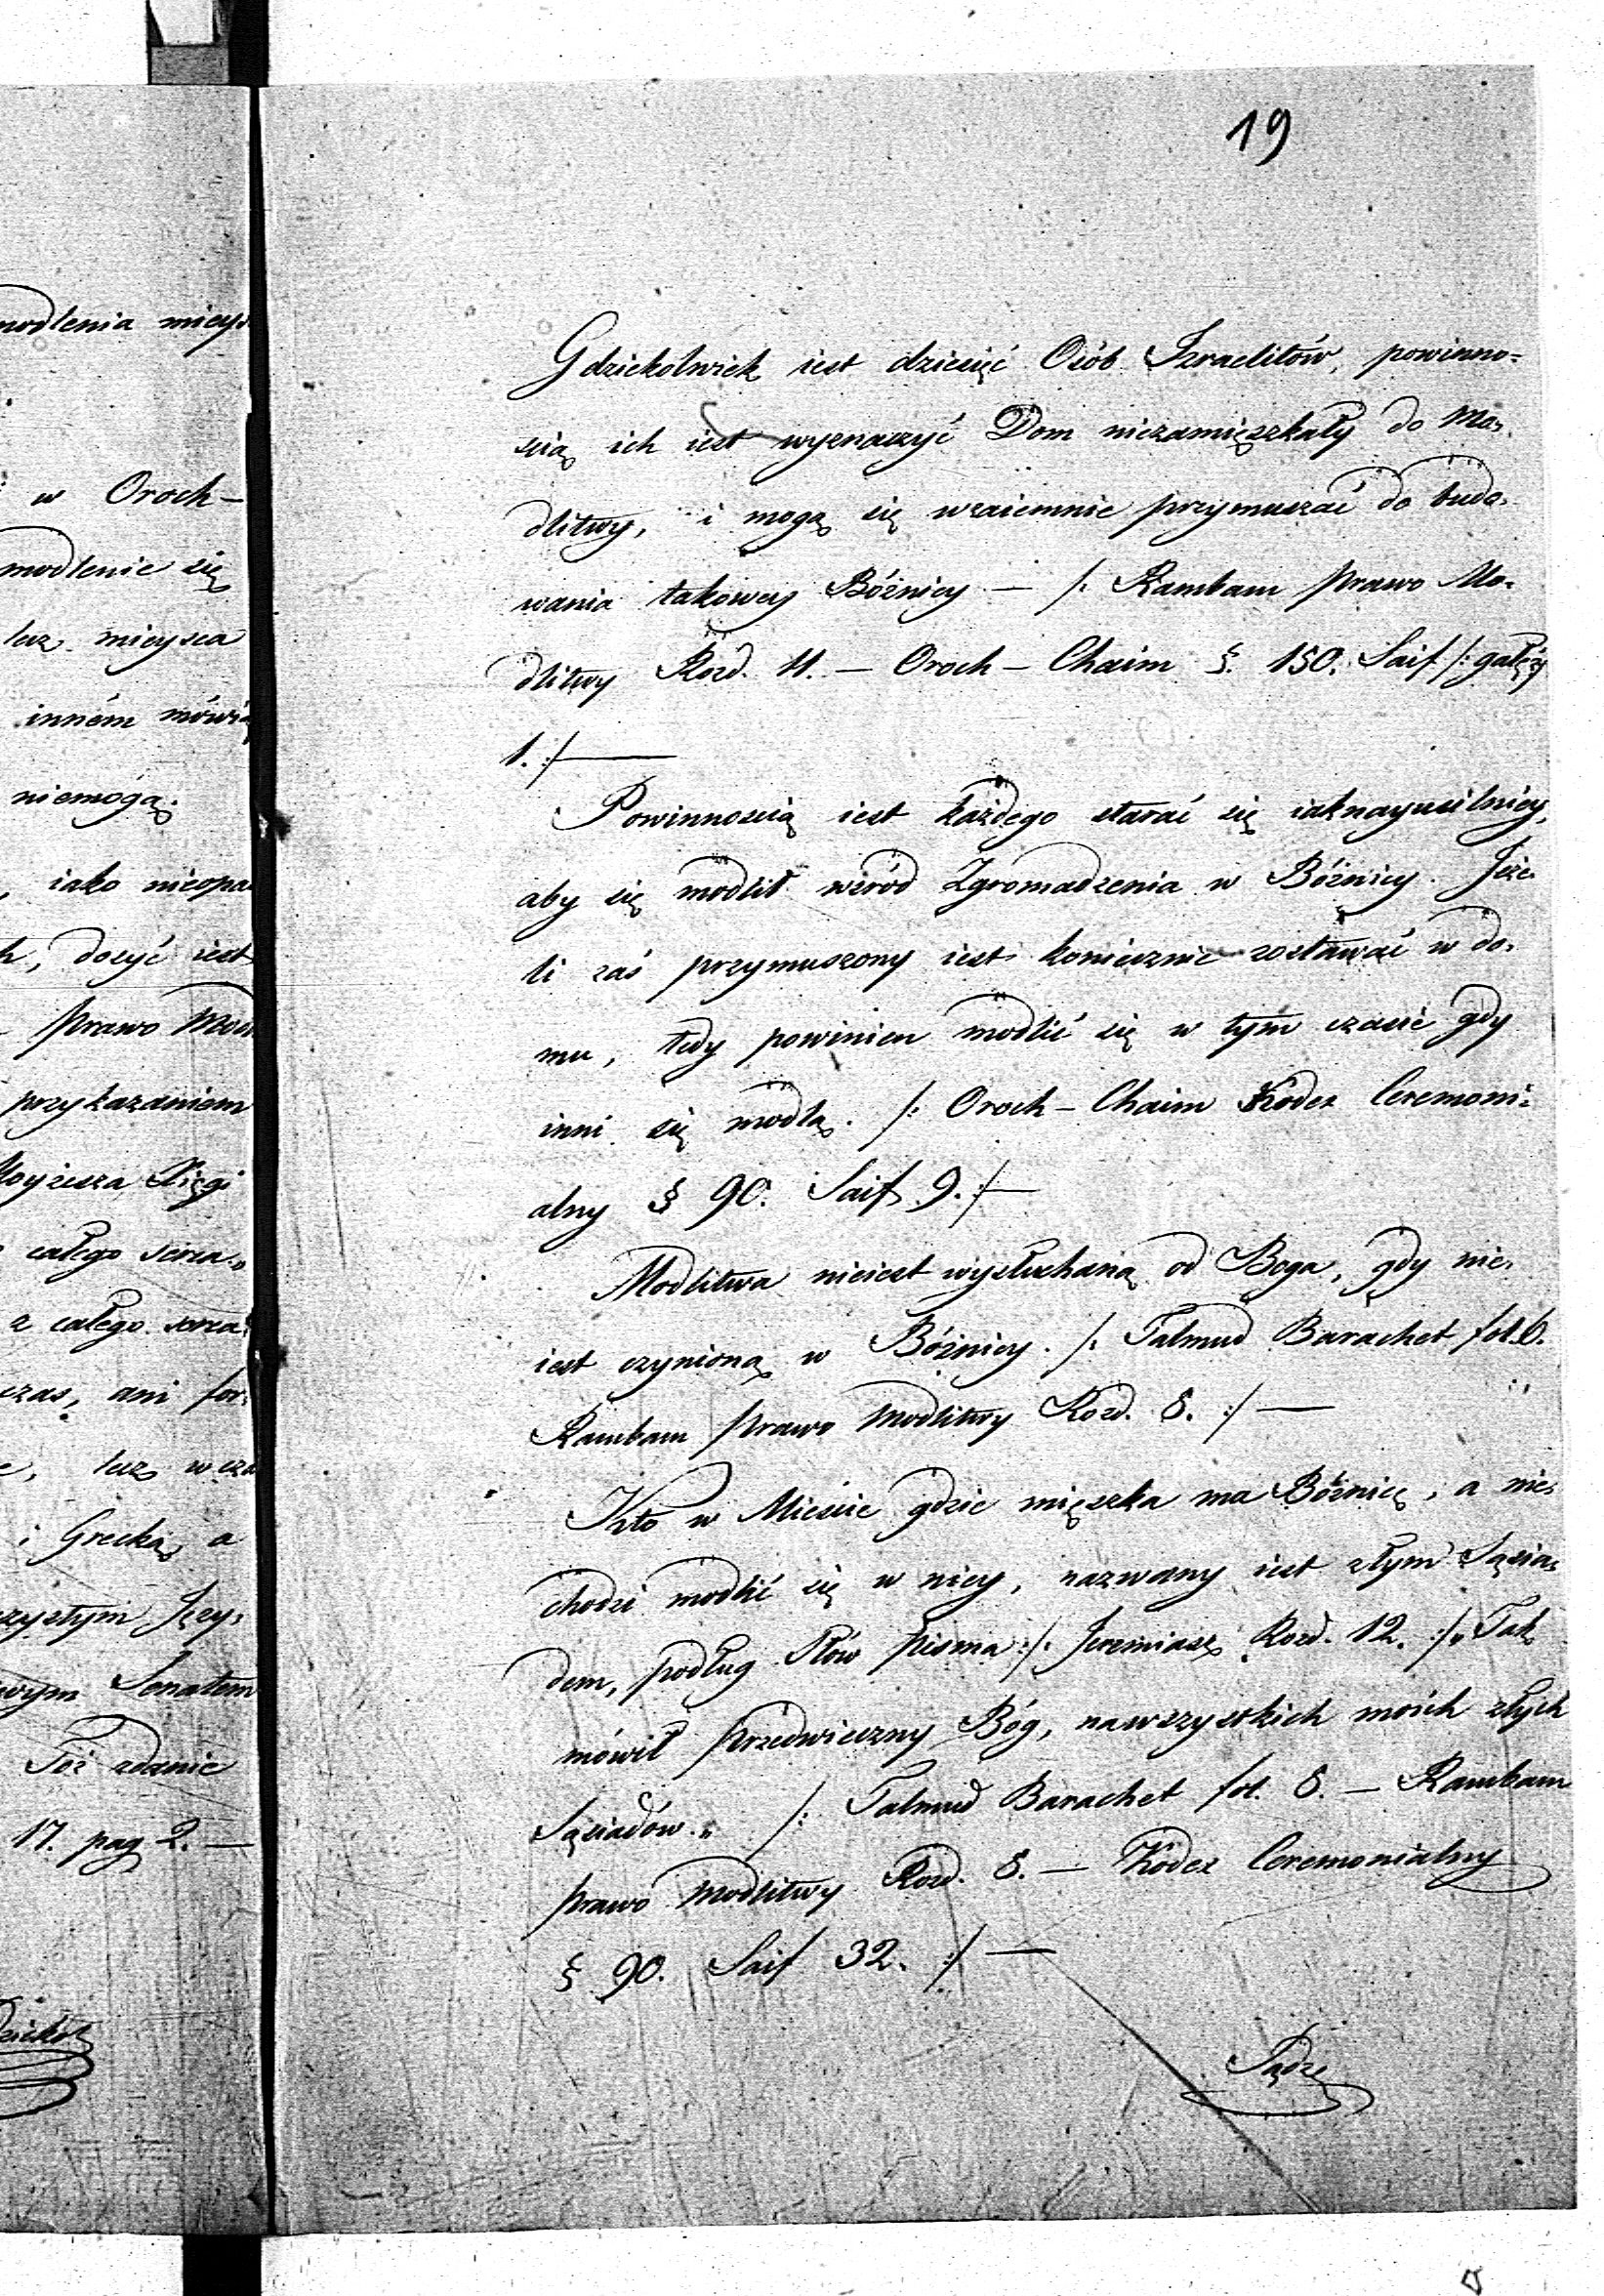 19
nodlenia mieys
w Oroch-
modlenie się
lecz miejsca
inném mówią
niemogą.
, iako nieopa
h, dosyć iest
Prawo Mod
przykazaniem
Moyżesza Xięgi
całego serca„
z całego serca
czas, ani for:
e, lecz w cza
i Grecką a
czystym Języ,
wym Senatem
Toż zdanie
17. pag 2. —
Gdziekolwiek iest dziesięć Osób Izraelitów, powinno=
scią ich iest wyznaczyć Dom niezamięszkały do Mo=
dlitwy, i mogą się wzaiemnie przymuszać do budo=
wania takowey Bóżnicy — /: Rambam Prawo Mo=
dlitwy Rozd. 11. — Oroch — Chaim §. 150. Saif /: gałęzy
1. :/ —
Powinnoscią iest każdego starać się iaknayusilniey,
aby się modlił wsród Zgromadzenia w Bóżnicy. Jeże=
li zaś przymuszony iest koniecznie zostawać w do=
mu, tedy powinien modlić się w tym czasie gdy
inni się modlą. /: Oroch — Chaim Kodex Ceremoni=
alny § 90. Saif 9. :/ —
Modlitwa nieiest wysłuchaną od Boga, gdy nie=
iest czynioną w Bóżnicy. /: Talmud Barachet fol. 6.
Rambam Prawo Modlitwy Rozd. 8. :/ —
Kto w Mieście gdzie mięszka ma Bóżnicę, a nie=
chodzi modlić się w niey, nazwany iest złym Sąsia=
dem, podług Słów Pisma :/: Jeremiasz Rozd. 12. :/ „Tak
mówił Przedwieczny Bóg, nawszystkich moich złych
Sąsiadów.„ /: Talmud Barachet fol. 8. — Rambam
prawo Modlitwy Rozd. 8. — Kodex Ceremonialny
§ 90. Saif 32. :/ —
Sądzę